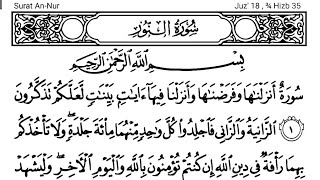 Surat An-Nur Juz' 18 , ¾ Hizb 35
سُورَةُ النُّورِ
بِسْمِ اللَّهِ الرَّحْمَٰنِ الرَّحِيمِ
سُورَةٌ أَنزَلْنَٰهَا وَفَرَضْنَٰهَا وَأَنزَلْنَا فِيهَآ ءَايَٰتٍۭ بَيِّنَٰتٍ لَّعَلَّكُمْ تَذَكَّرُونَ
١ الزَّانِيَةُ وَالزَّانِي فَاجْلِدُوا۟ كُلَّ وَٰحِدٍ مِّنْهُمَا مِا۟ئَةَ جَلْدَةٍ ۖ وَلَا تَأْخُذْكُم
بِهِمَا رَأْفَةٌ فِي دِينِ اللَّهِ إِن كُنتُمْ تُؤْمِنُونَ بِاللَّهِ وَالْيَوْمِ الْءَاخِرِ ۖ وَلْيَشْهَدْ